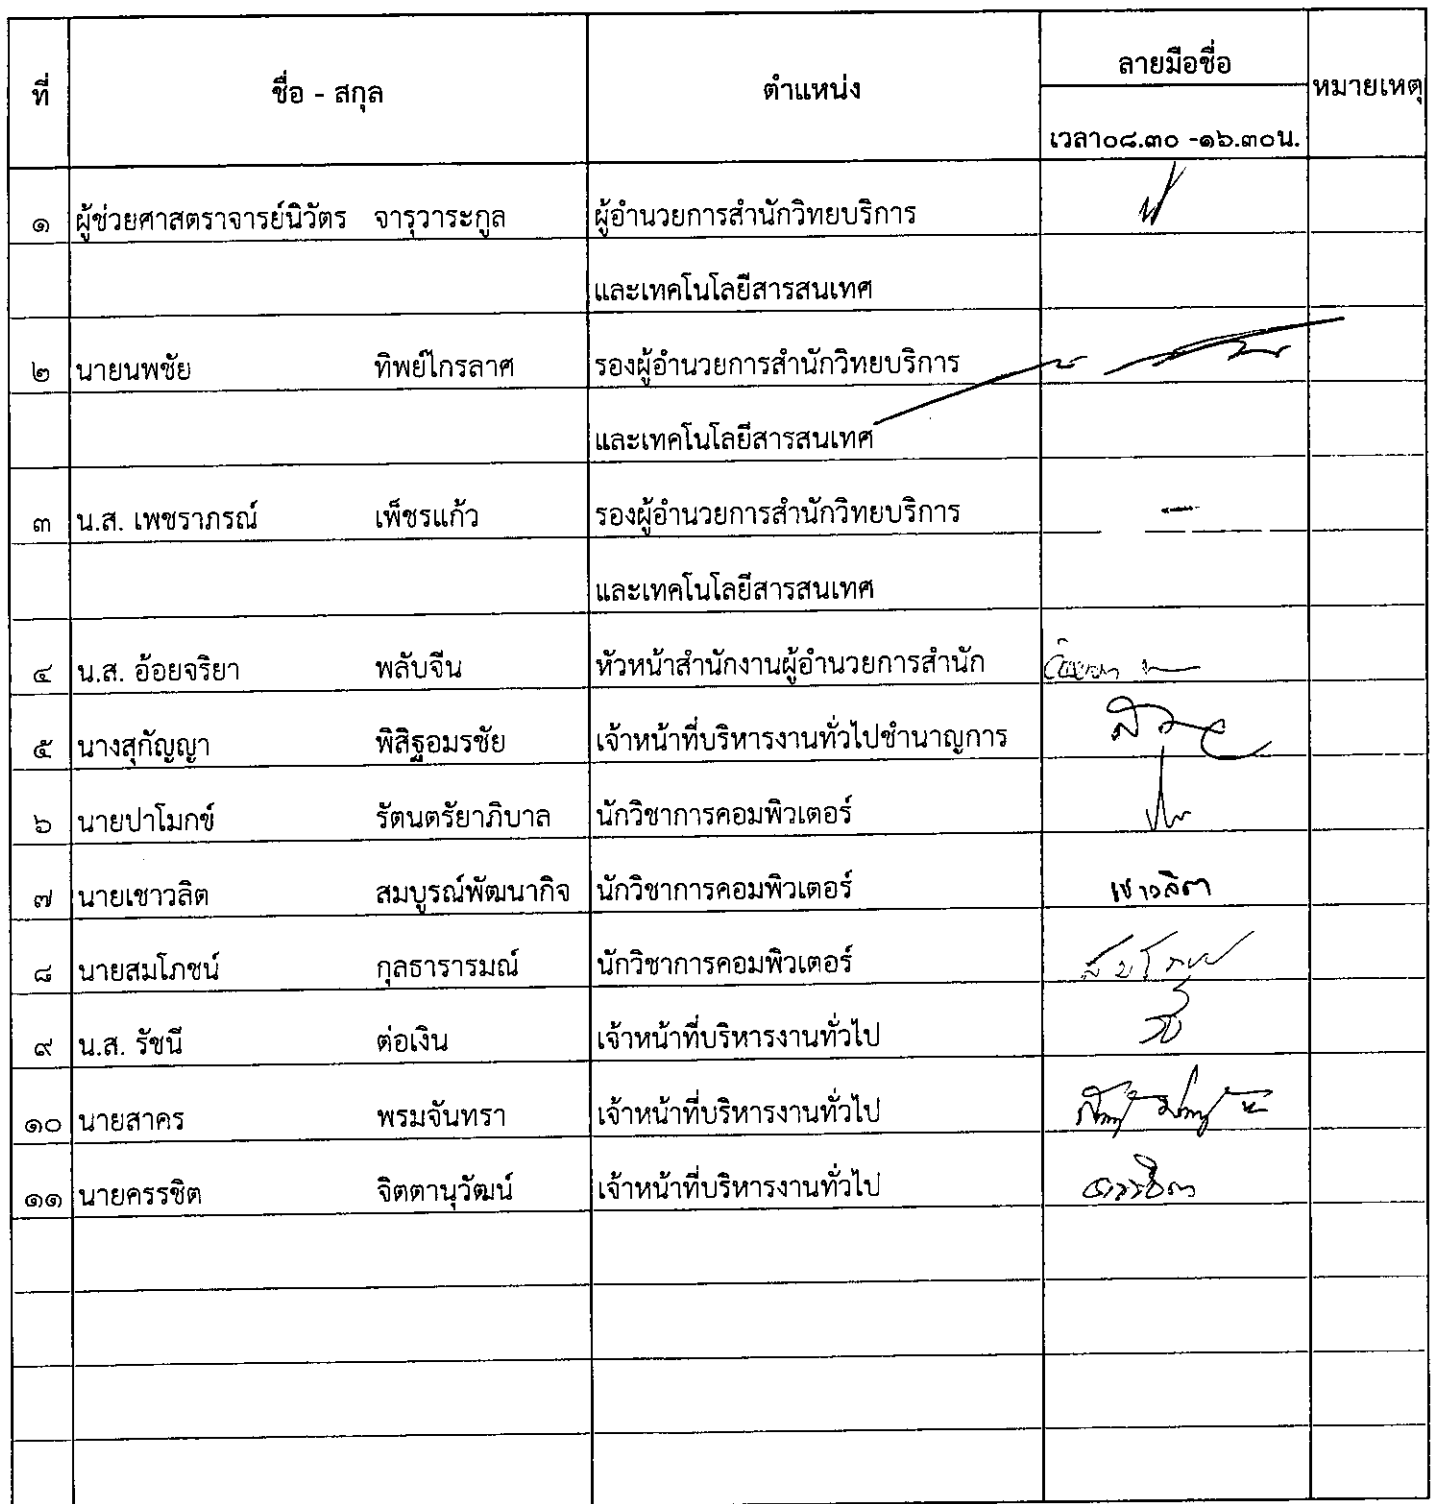 ที่ ชื่อ - สกุล ตำแหน่ง ลายมือชื่อ หมายเหตุ
เวลา๐๘.๓๐ -๑๖.๓๐น.
๑ ผู้ช่วยศาสตราจารย์นิวัตร จารุวาระกูล ผู้อำนวยการสำนักวิทยบริการ
และเทคโนโลยีสารสนเทศ
๒ นายนพชัย ทิพย์ไกรลาศ รองผู้อำนวยการสำนักวิทยบริการ
และเทคโนโลยีสารสนเทศ
๓ น.ส. เพชราภรณ์ เพ็ชรแก้ว รองผู้อำนวยการสำนักวิทยบริการ
และเทคโนโลยีสารสนเทศ
๔ น.ส. อ้อยจริยา พลับจีน หัวหน้าสำนักงานผู้อำนวยการสำนัก
๕ นางสุกัญญา พิสิฐอมรชัย เจ้าหน้าที่บริหารงานทั่วไปชำนาญการ
๖ นายปาโมกข์ รัตนตรัยาภิบาล นักวิชาการคอมพิวเตอร์
๗ นายเชาวลิต สมบูรณ์พัฒนากิจ นักวิชาการคอมพิวเตอร์ เชาวลิต
๘ นายสมโภชน์ กุลธารารมณ์ นักวิชาการคอมพิวเตอร์
๙ น.ส. รัชนี ต่อเงิน เจ้าหน้าที่บริหารงานทั่วไป
๑๐ นายสาคร พรมจันทรา เจ้าหน้าที่บริหารงานทั่วไป
๑๑ นายครรชิต จิตตานุวัฒน์ เจ้าหน้าที่บริหารงานทั่วไป ครรชิต